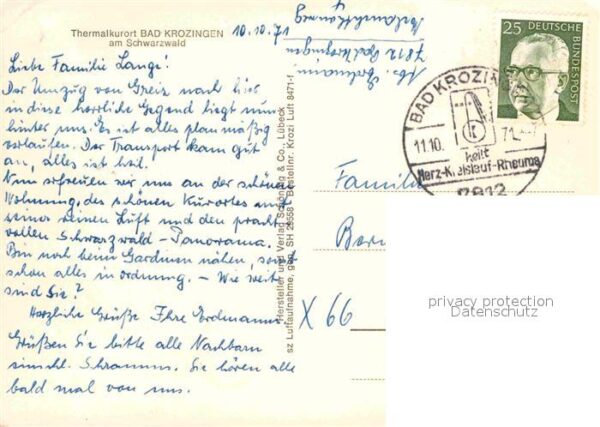 Thermalkurort BAD KROZINGEN
am Schwarzwald
10.10.71
Liebe Familie Lange!
Der Umzug von Greiz nach hier
in diese herrliche Gegend liegt nun
hinter uns. Es ist alles planmäßig
verlaufen. Der Transport kam gut
an, alles ist heil.
Nun erfreuen wir uns an der schönen
Wohnung, des schönen Kurortes mit
seiner reinen Luft und den pracht
vollen Schwarzwald-Panorama.
Bin noch beim Gardinen nähen, sonst
schon alles in Ordnung. - Wie weit
sind Sie?
Herzliche Grüße Ihre Erdmanns
Grüßen Sie bitte alle Nachbarn
einschl. Schramms. Sie hören alle
bald mal von uns.
Hersteller und Verlag Schöning & Co., Lübeck
sz Luftaufnahme, gen. SH 25581 Bestellnr. Krozi Luft 8471-f
Abs. Erdmann
7812 Bad Krozingen
25
DEUTSCHE
BUNDESPOST
BAD KROZIN
11.10. 71
heilt
Herz-Kreislauf-Rheuma
7812
Famili
X 66
privacy protection
Datenschutz